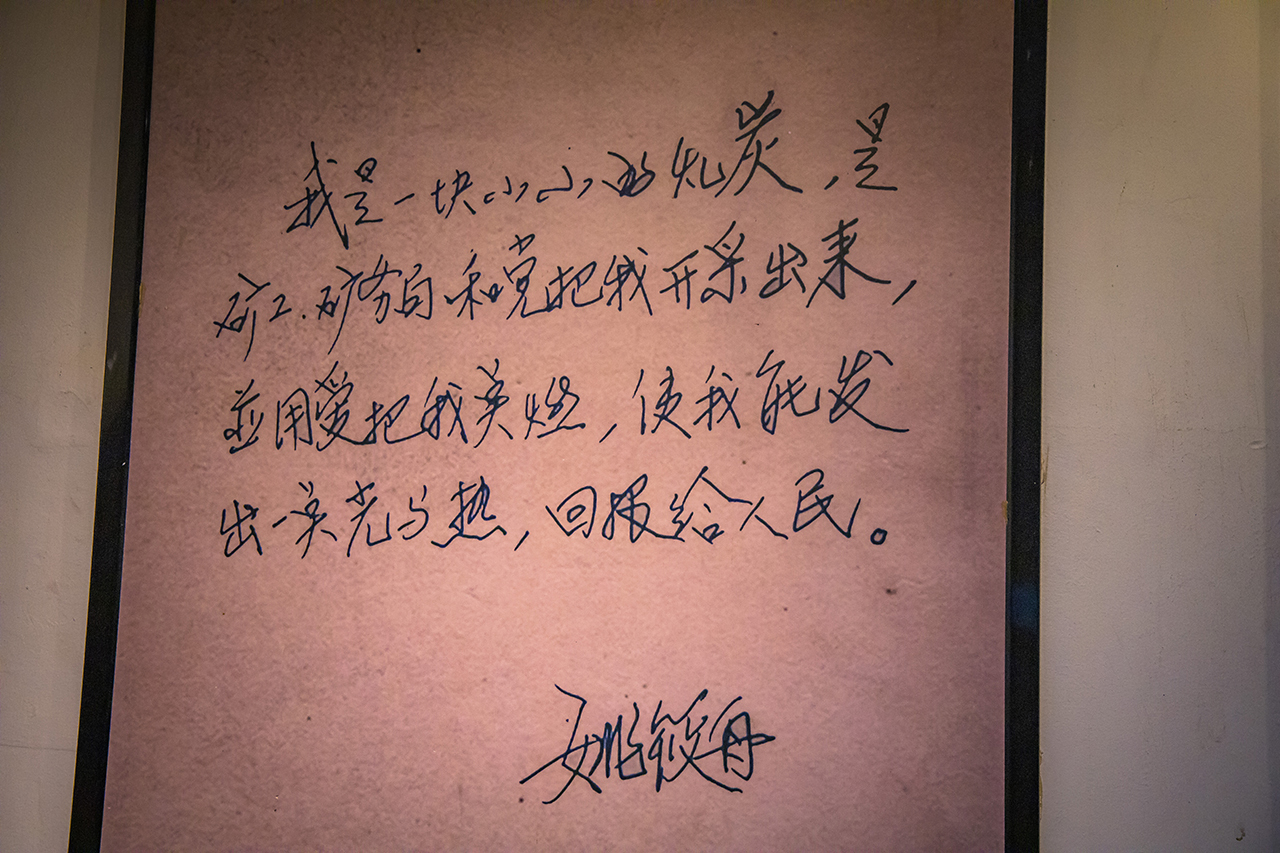 我是一块小小的煤炭，是
矿工、矿务局和党把我开采出来，
並用爱把我点燃，使我能发
出一点光与热，回报给人民。
姚筱舟